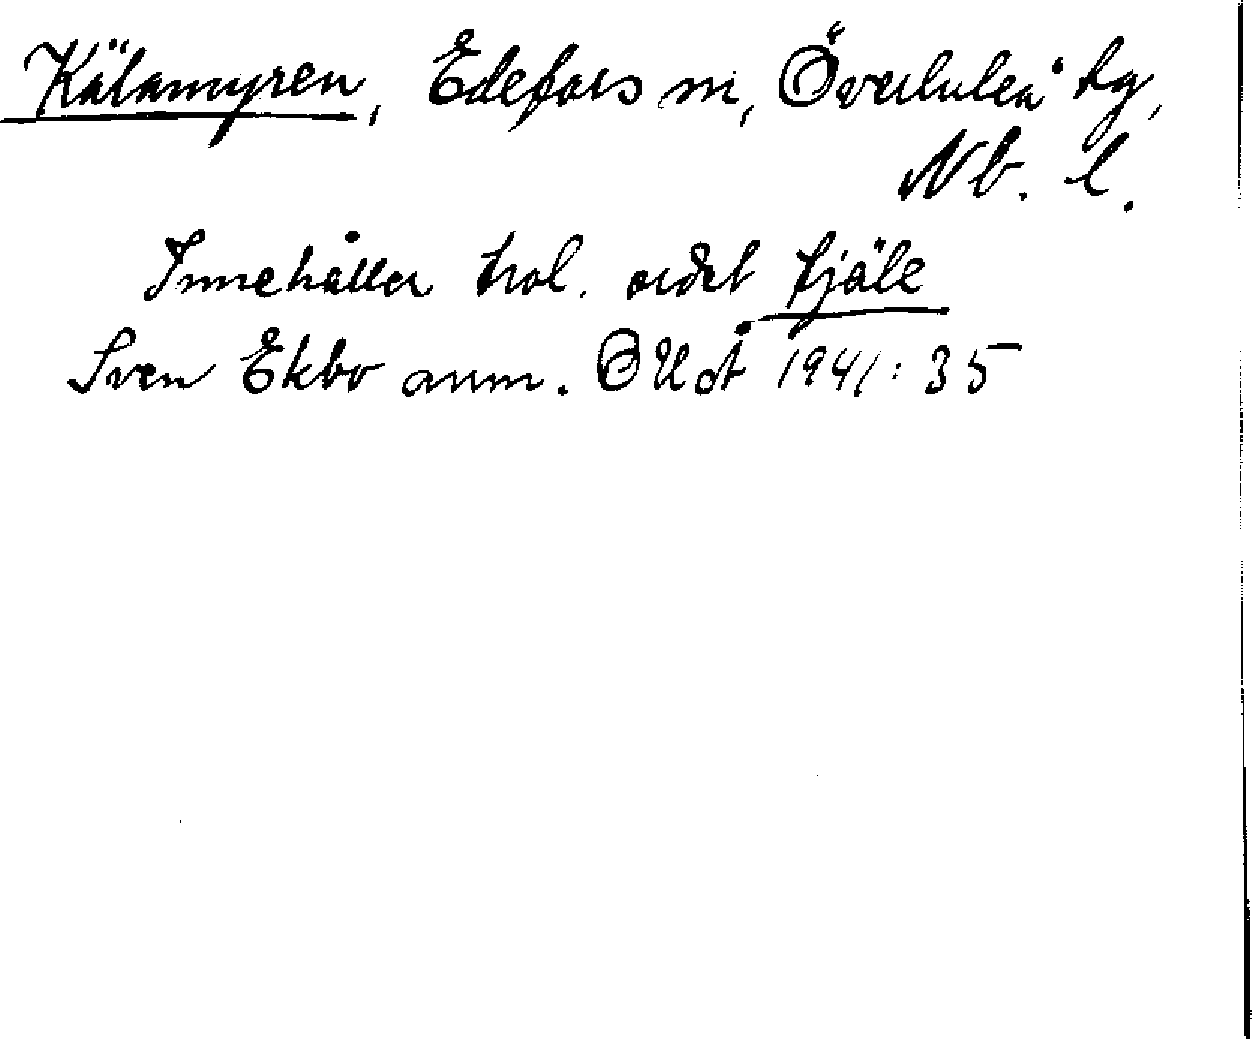 Kälamyren, Edefors sn, Överluleå tg,
Nb. l.
Innehåller trol. ordet tjäle
Sven Ekbo anm. OUÅ 1941: 35